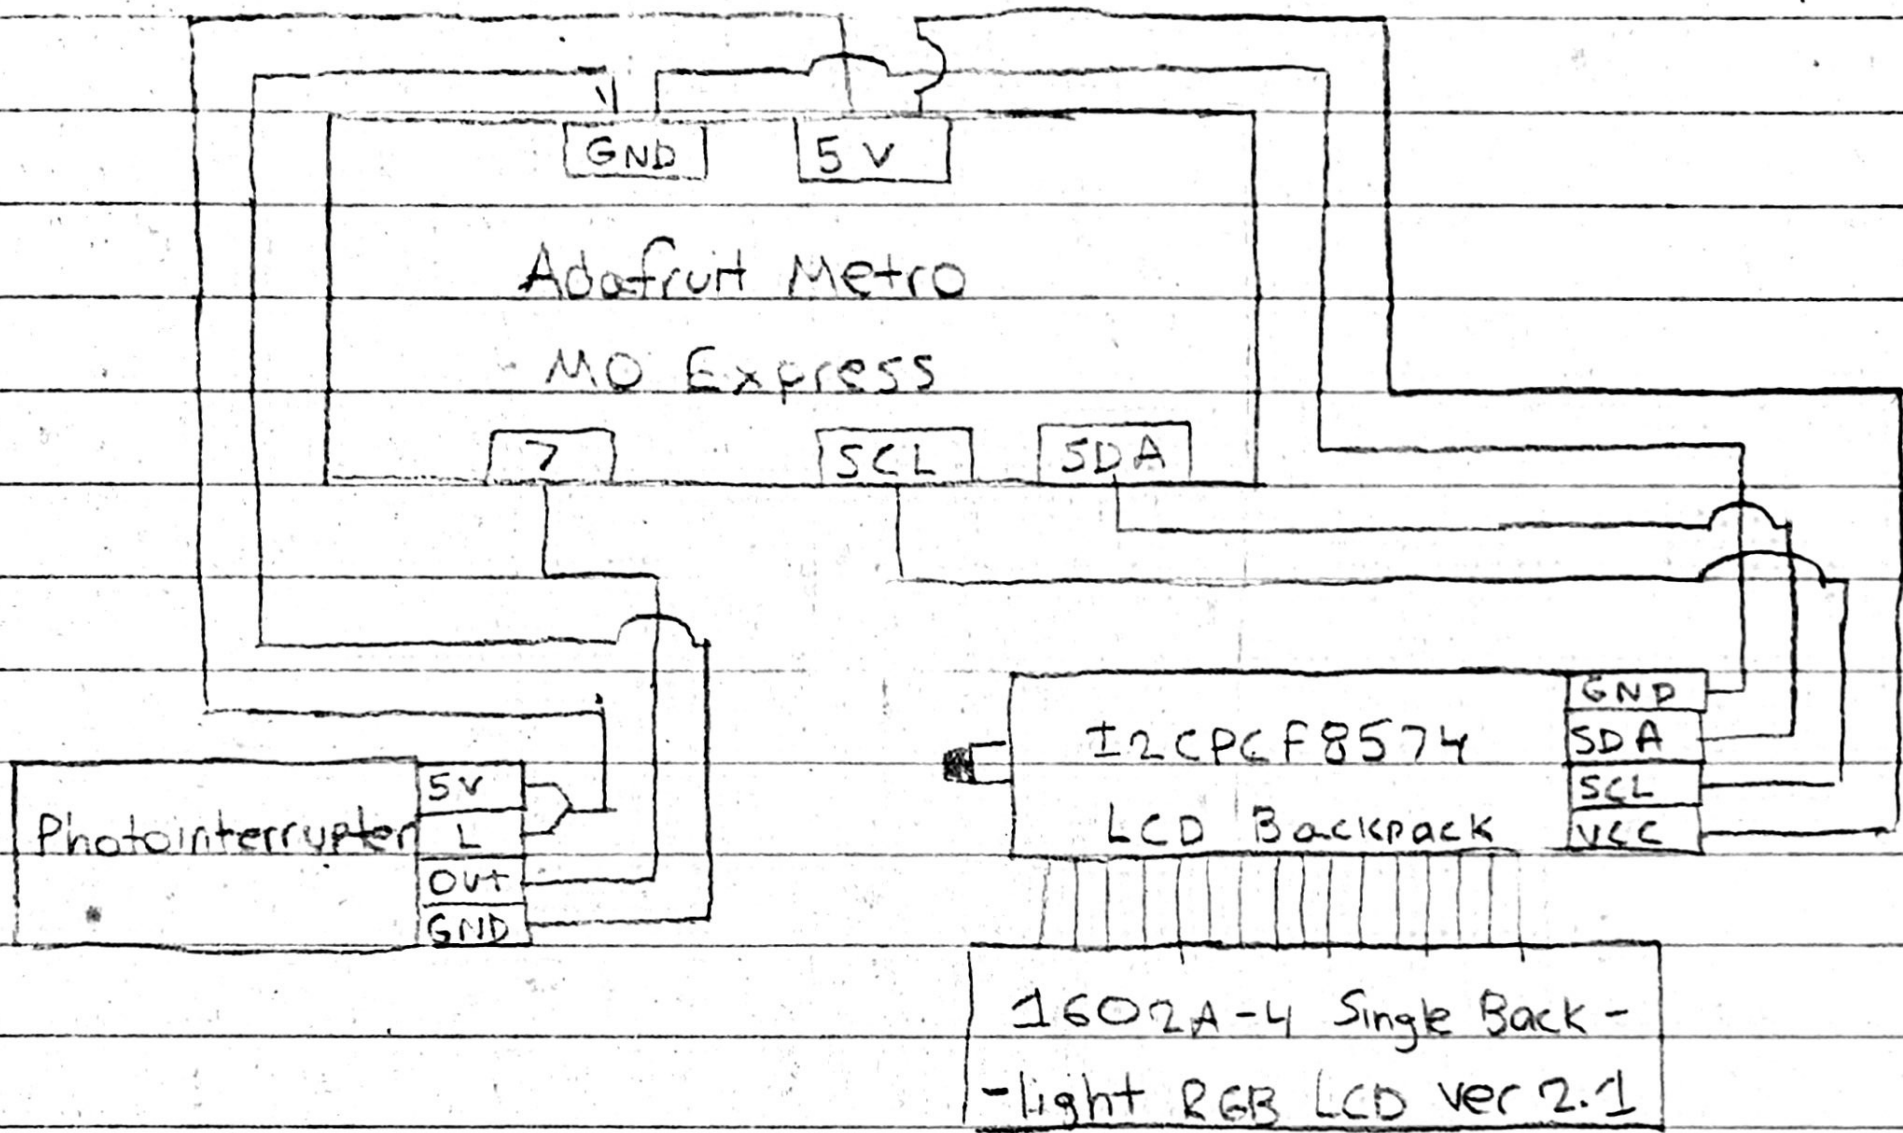 GND
5V
Adafruit Metro
M0 Express
7
SCL
SDA
Photointerrupter
5V
L
Out
GND
I2CPCF8574
LCD Backpack
GND
SDA
SCL
VCC
1602A-4 Single Back-
-light RGB LCD ver 2.1